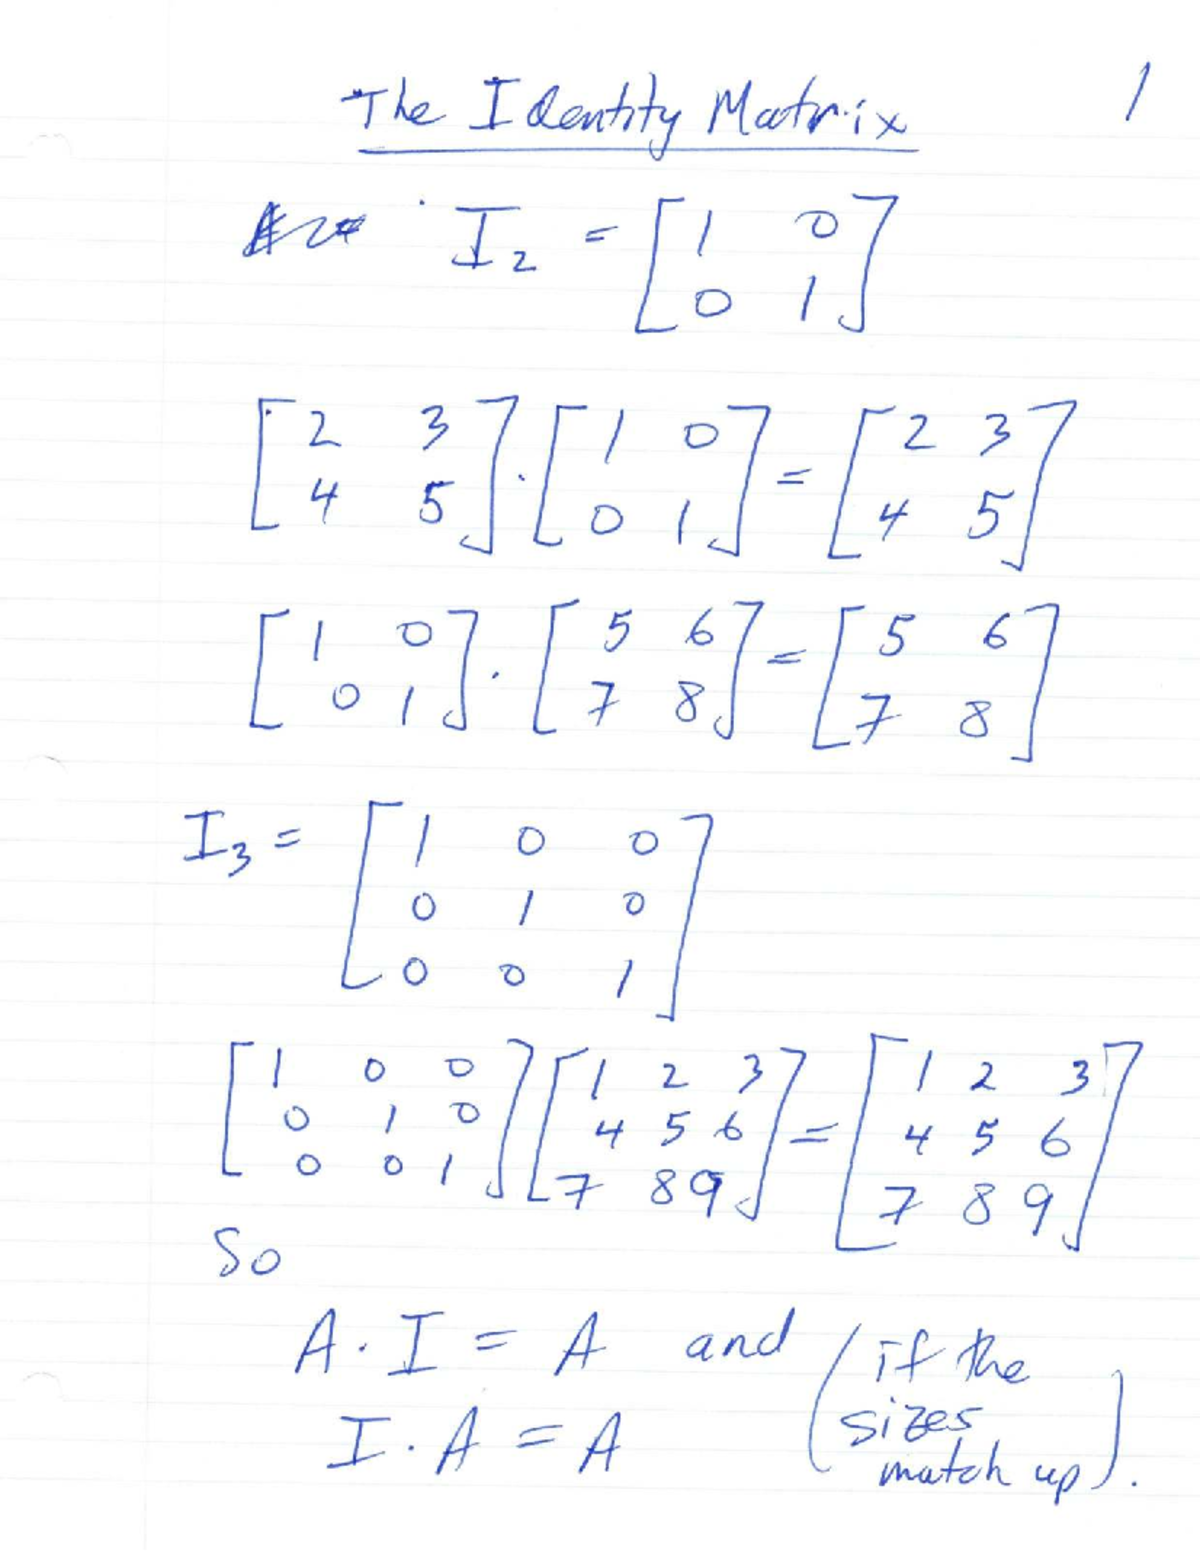 The Identity Matrix 1
I₂ = [1 0
0 1]
[2 3
4 5] · [1 0
0 1] = [2 3
4 5]
[1 0
0 1] · [5 6
7 8] = [5 6
7 8]
I₃ = [1 0 0
0 1 0
0 0 1]
[1 0 0
0 1 0
0 0 1] [1 2 3
4 5 6
7 8 9] = [1 2 3
4 5 6
7 8 9]
So
A · I = A and
I · A = A
(if the
sizes
match up).